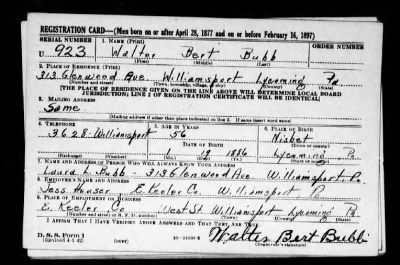 REGISTRATION CARD—(Men born on or after April 28, 1877 and on or before February 16, 1897)
SERIAL NUMBER 1. NAME (Print) ORDER NUMBER
U 923 Walter Bert Bubb
(First) (Middle) (Last)
2. PLACE OF RESIDENCE (Print)
313 Glenwood Ave. Williamsport Lycoming Pa
(Number and street) (Town, township, village, or city) (County) (State)
[THE PLACE OF RESIDENCE GIVEN ON THE LINE ABOVE WILL DETERMINE LOCAL BOARD
JURISDICTION; LINE 2 OF REGISTRATION CERTIFICATE WILL BE IDENTICAL]
3. MAILING ADDRESS
Same
[Mailing address if other than place indicated on line 2. If same insert word same]
4. TELEPHONE 5. AGE IN YEARS 6. PLACE OF BIRTH
3628-Williamsport 56 Nisbet
DATE OF BIRTH (Town or county)
1 19 1886 Lycoming Pa.
(Exchange) (Number) (Mo.) (Day) (Yr.) (State or country)
7. NAME AND ADDRESS OF PERSON WHO WILL ALWAYS KNOW YOUR ADDRESS
Laura L. Bubb - 313 Glenwood Ave Williamsport, Pa.
8. EMPLOYER'S NAME AND ADDRESS
Jess Houser E. Keeler Co. Williamsport Pa.
9. PLACE OF EMPLOYMENT OR BUSINESS
E. Keeler Co. West St. Williamsport Lycoming Pa.
(Number and street or R. F. D. number) (Town) (County) (State)
I AFFIRM THAT I HAVE VERIFIED ABOVE ANSWERS AND THAT THEY ARE TRUE.
D. S. S. Form 1
(Revised 4-1-42) (over) Walter Bert Bubb
(Registrant's signature)